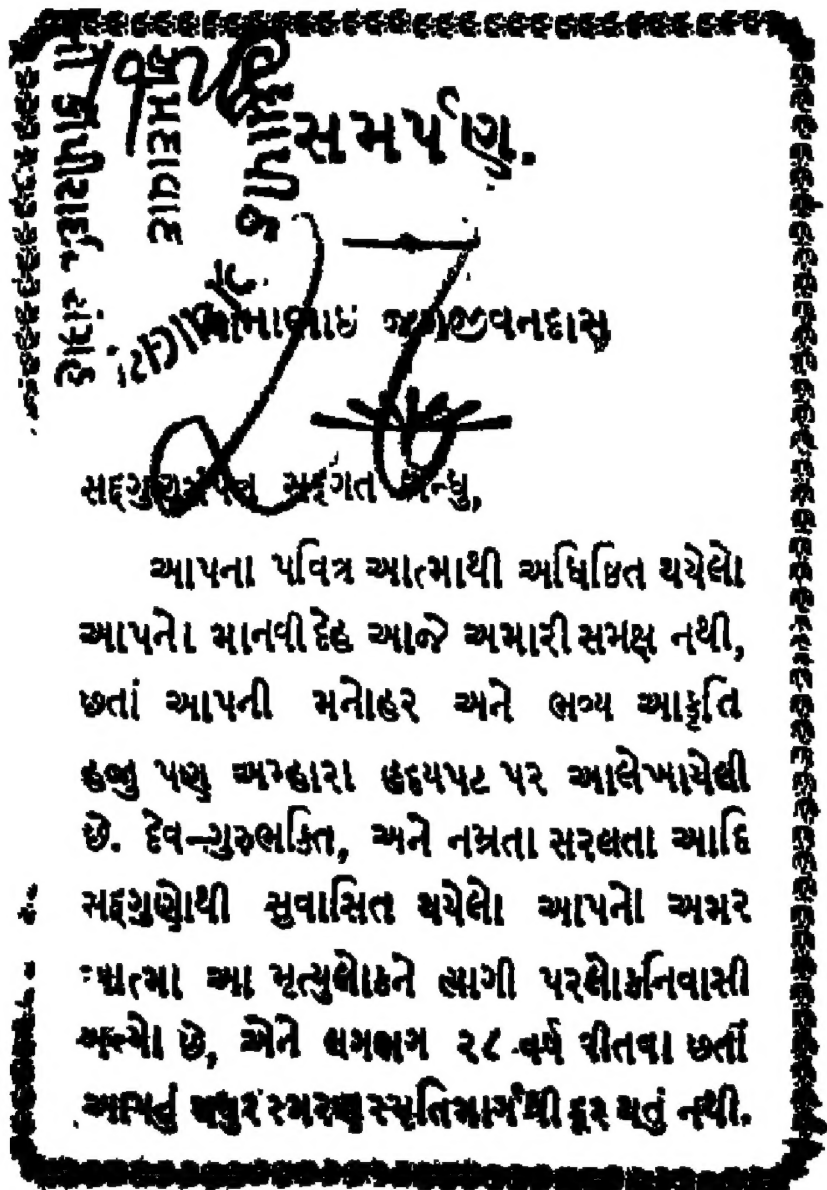 સમર્પણ.
જીવનદાસ
સદ્દગત બન્ધુ,
આપના પવિત્ર આત્માથી અધિષ્ઠિત થયેલો
આપનો માનવી દેહ આજે અમારી સમક્ષ નથી,
છતાં આપની મનોહર અને ભવ્ય આકૃતિ
હજુ પણ અમ્હારા હૃદયપટ પર આલેખાયેલી
છે. દેવ-ગુરુભક્તિ, અને નમ્રતા સરલતા આદિ
સદ્દગુણોથી સુવાસિત થયેલો આપનો અમર
આત્મા આ મૃત્યુલોકને ત્યાગી પરલોકનિવાસી
બન્યો છે, એને લગભગ ૨૮ વર્ષ વીતવા છતાં
આપનું મધુર સ્મરણ સ્મૃતિમાર્ગથી દૂર થતું નથી.